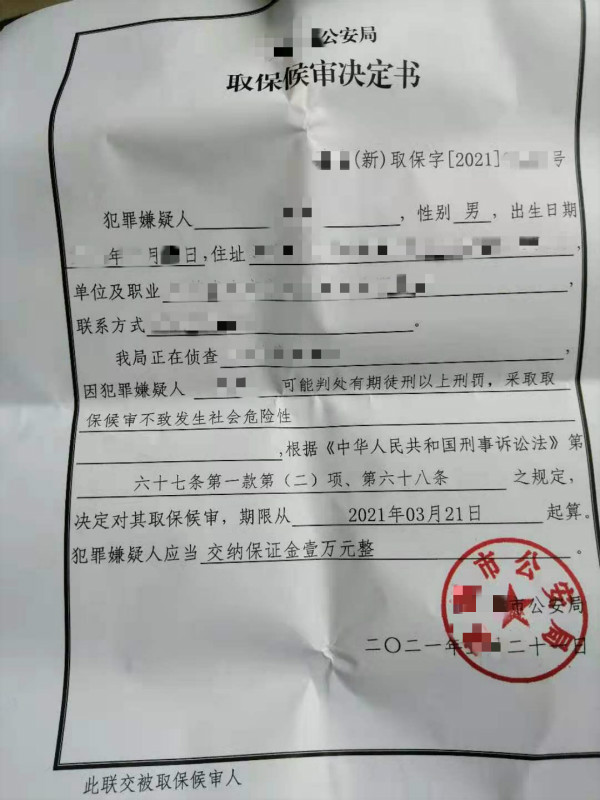 公安局
取保候审决定书
(新)取保字[2021] 号
犯罪嫌疑人 ，性别 男 ，出生日期
年 月 日，住址 ，
单位及职业 ，
联系方式 。
我局正在侦查 ，
因犯罪嫌疑人 可能判处有期徒刑以上刑罚，采取取
保候审不致发生社会危险性
，根据《中华人民共和国刑事诉讼法》第
六十七条第一款第(二)项、第六十八条 之规定，
决定对其取保候审，期限从 2021年03月21日 起算。
犯罪嫌疑人应当 交纳保证金壹万元整 。
市公安局
市公安局
二〇二一年 二十一日
此联交被取保候审人